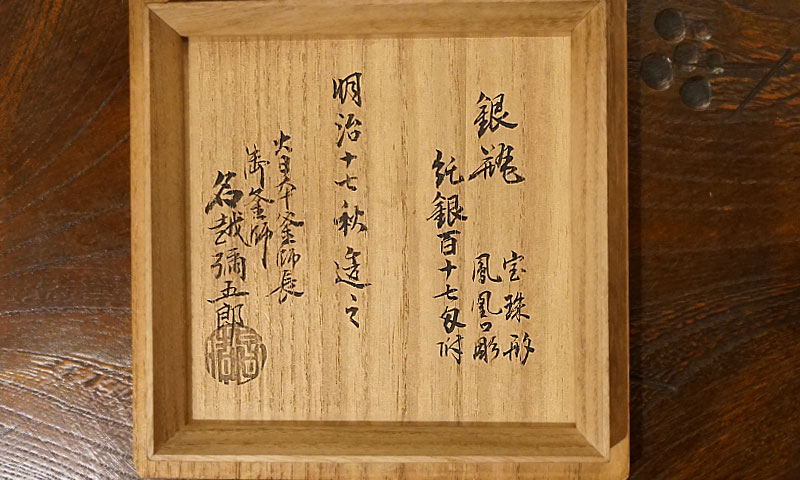 銀瓶
宝珠形
鳳凰口彫
純銀百十七匁附
明治十七秋造之
大日本釜師長
御釜師
名越彌五郎